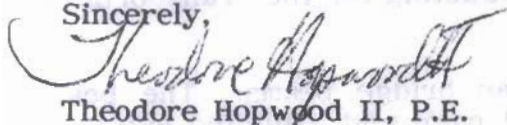 Sincerely,
Theodore Hopwood II
Theodore Hopwood II, P.E.